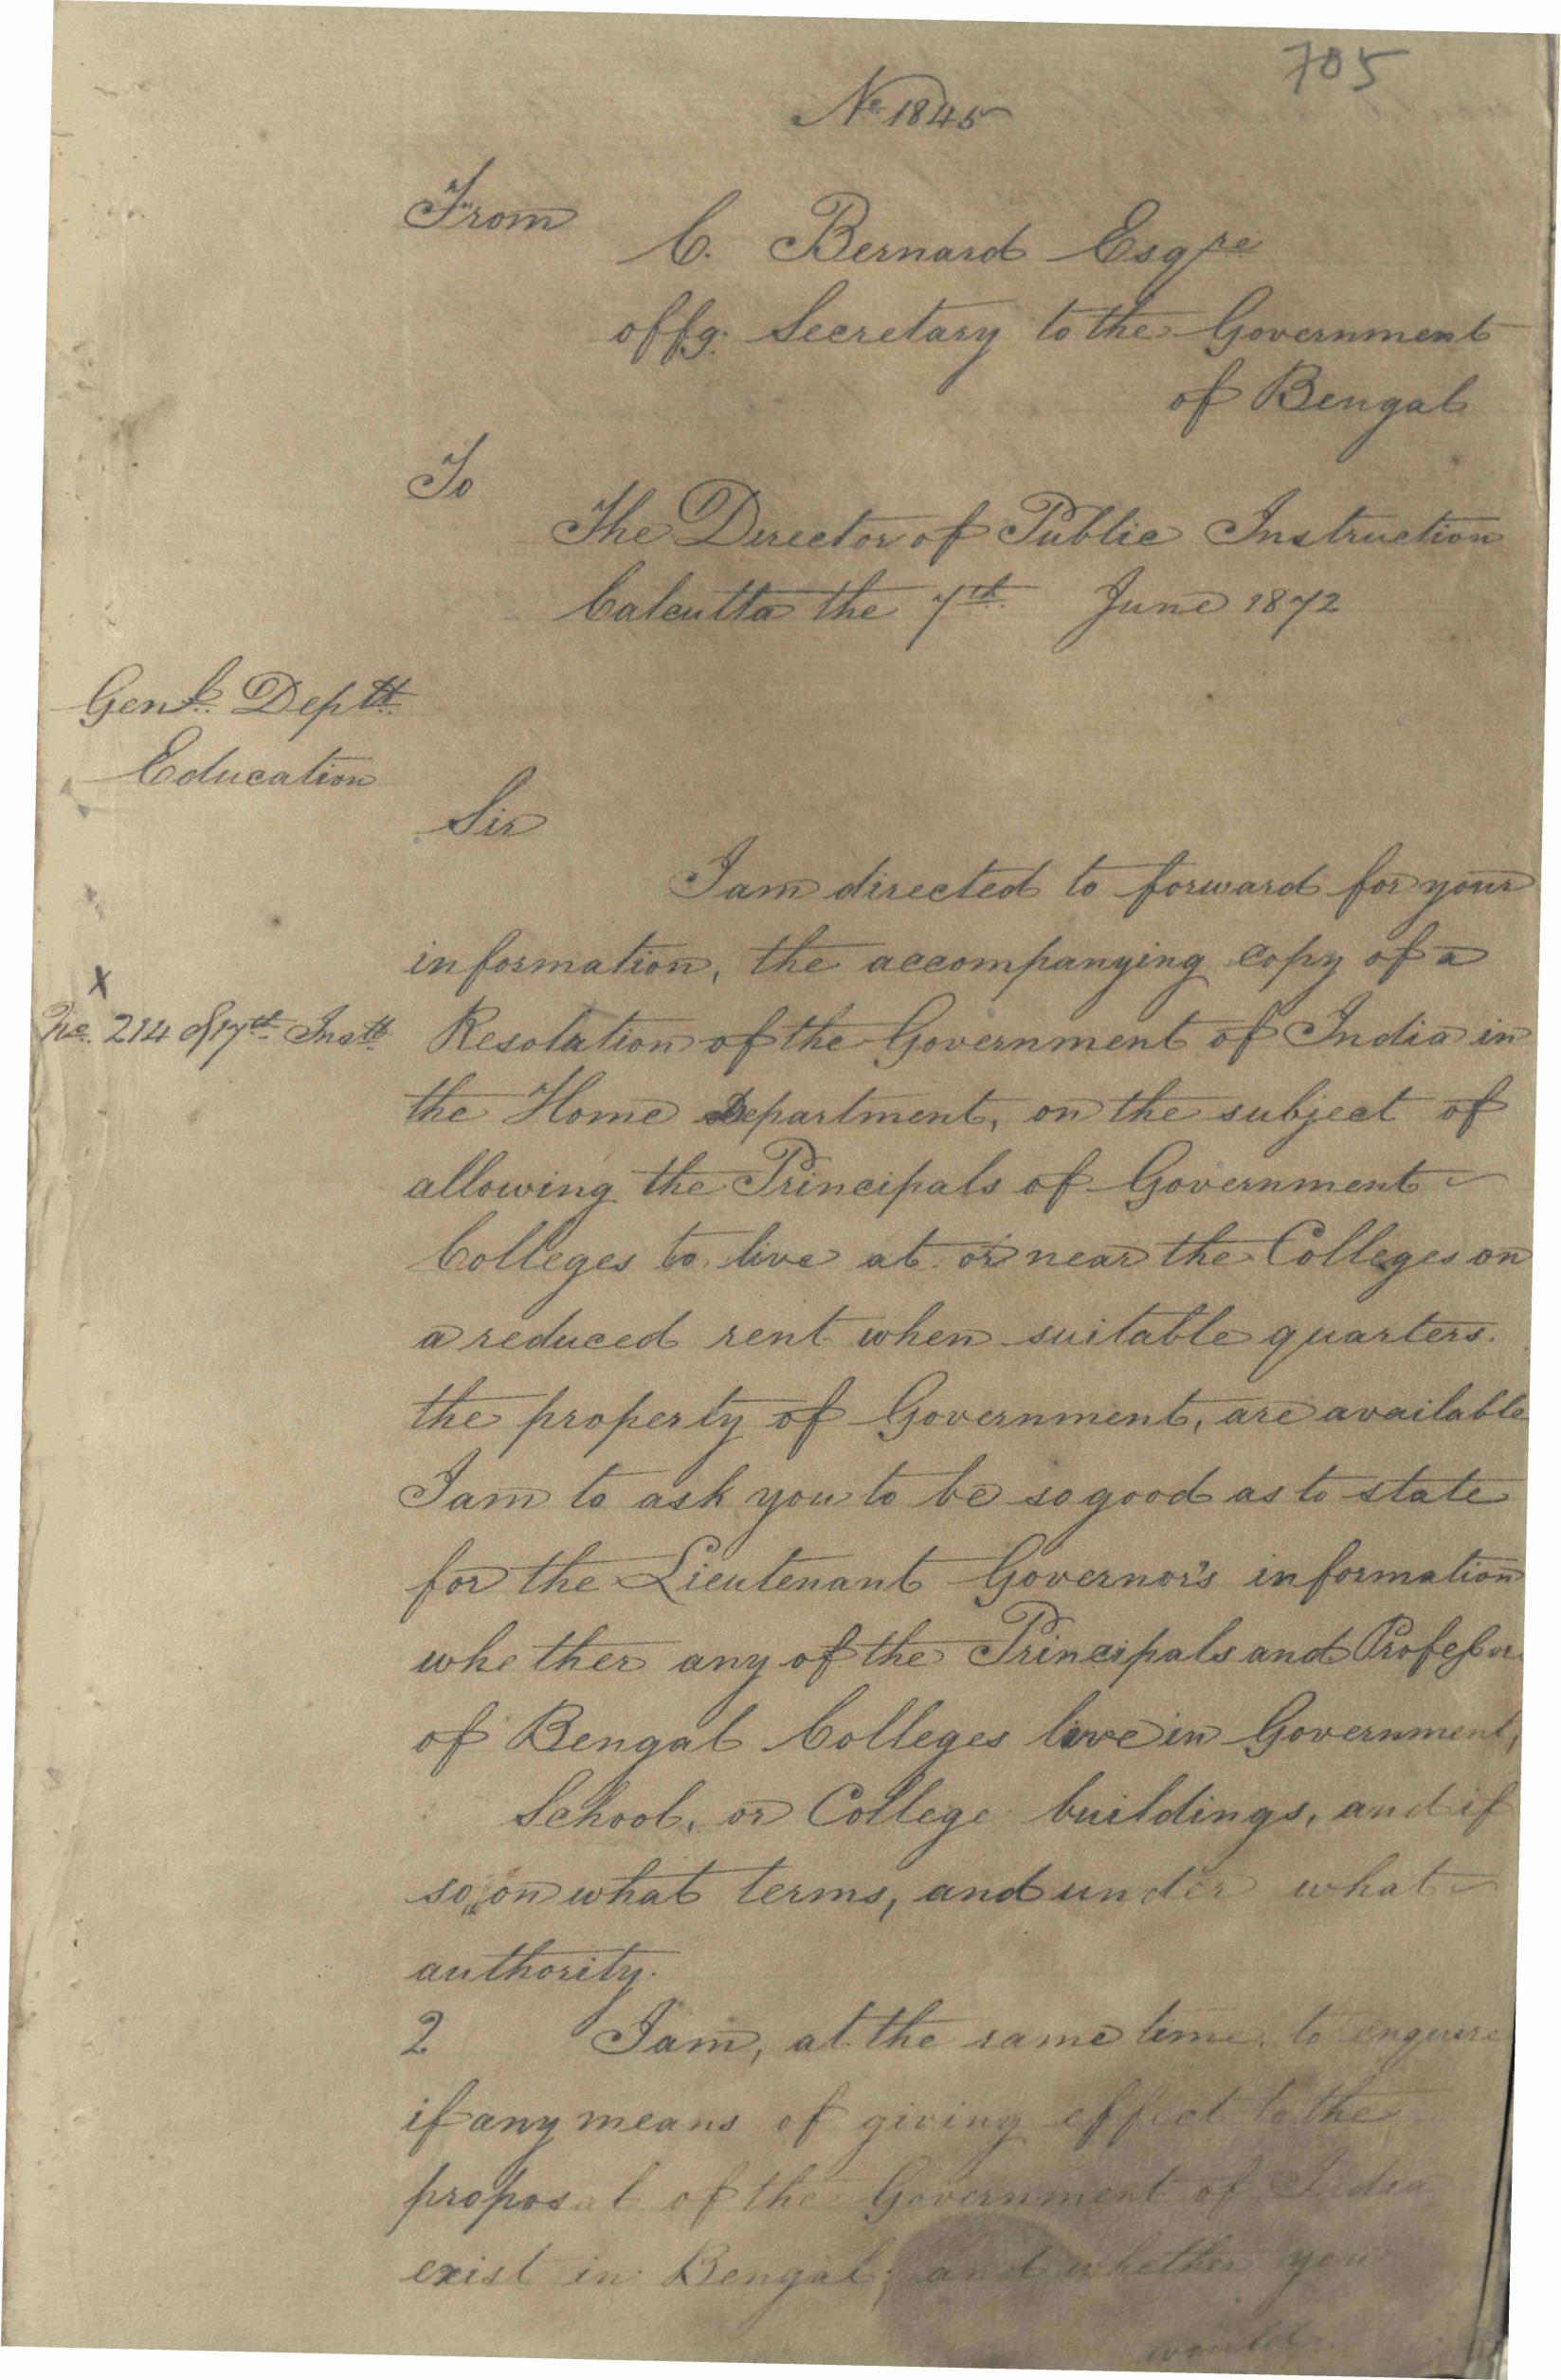 705
No 1845
From
C. Bernard Esqre
offg. Secretary to the Government
of Bengal
To
The Director of Public Instruction
Calcutta the 7th June 1872
Genl. Deptt.
Education
Sir
I am directed to forward for your
information, the accompanying copy of a
X
No. 214 of 17th Instt.
Resolution of the Government of India in
the Home Department, on the subject of
allowing the Principals of Government
Colleges to live at or near the Colleges on
a reduced rent when suitable quarters.
the property of Government, are available
I am to ask you to be so good as to state
for the Lieutenant Governor's information
whether any of the Principals and Professor
of Bengal Colleges live in Government,
School, or College buildings, and if
so, on what terms, and under what
authority.
2 I am, at the same time, to enquire
if any means of giving effect to the
proposal of the Government of India
exist in Bengal; and whether you
would